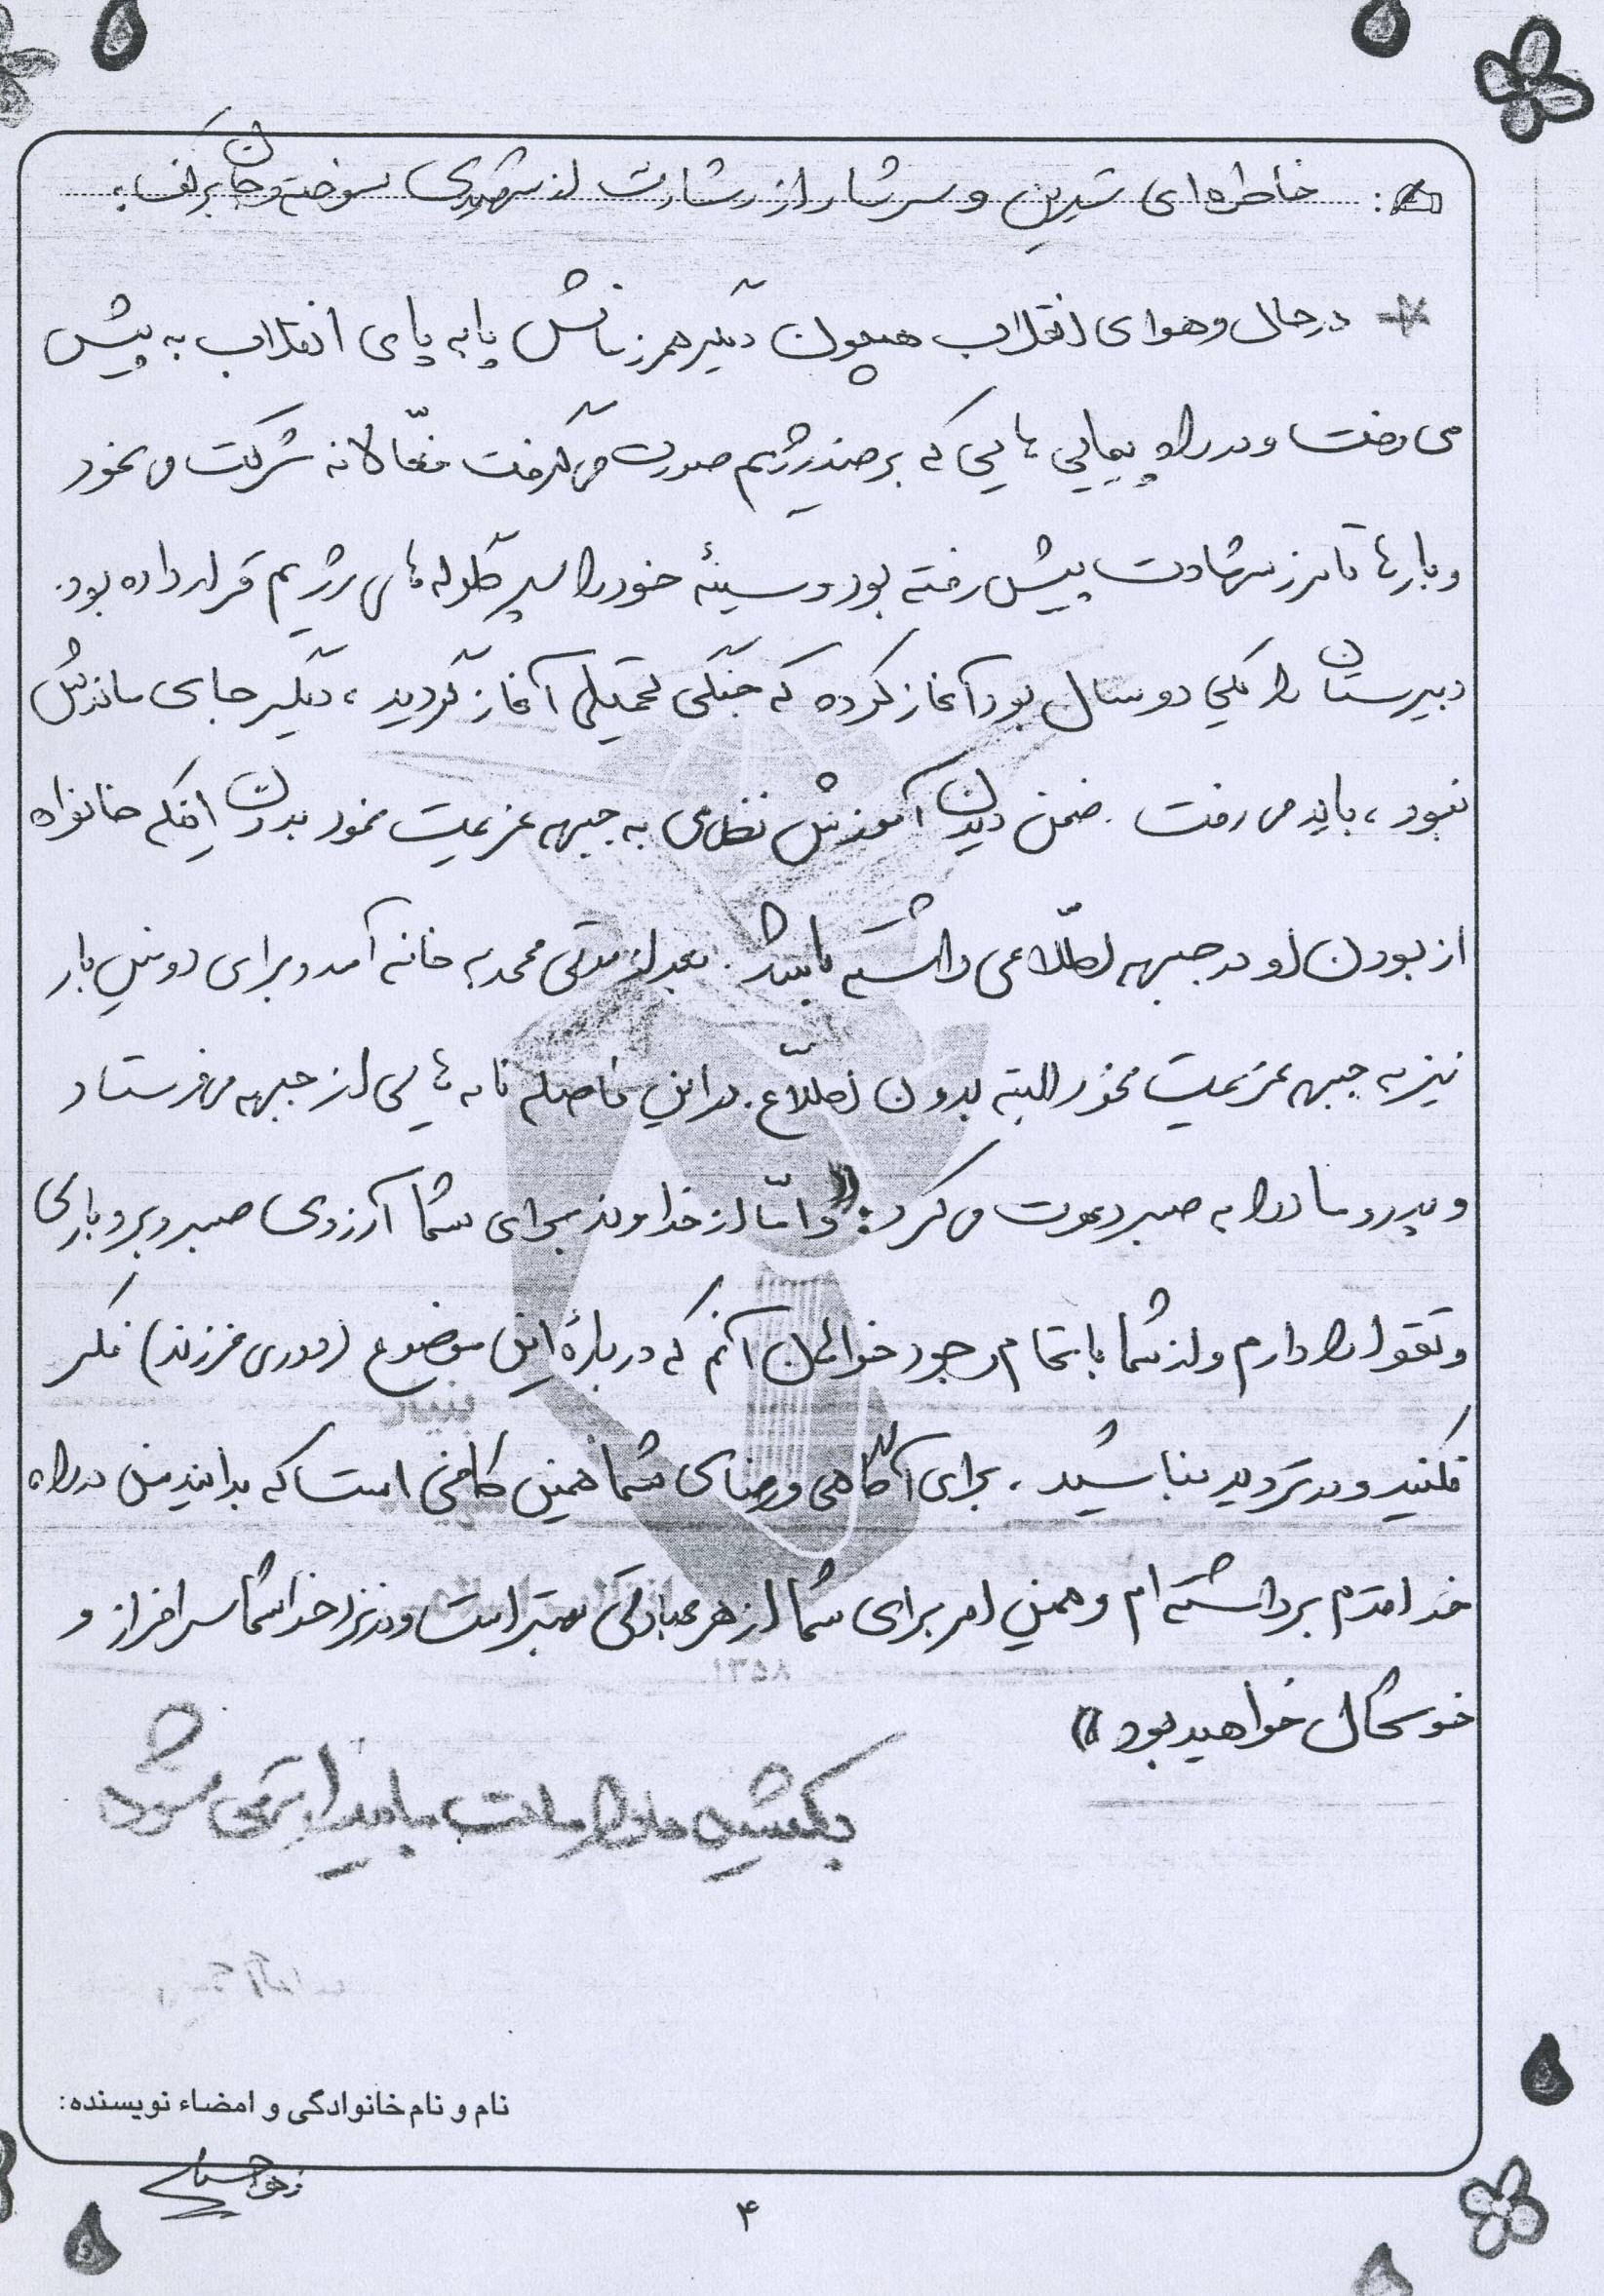 خاطره‌ای شیرین و سرشار از رشادت از شهیدی سوخته و جان برکف:
* در حال و هوای انقلاب همچون دیگر همرزمانش پا به پای انقلاب به پیش
می رفت و در راه پیمایی هایی که بر ضد رژیم صورت می گرفت فعّالانه شرکت می نمود
و بارها تا مرز شهادت پیش رفته بود و سینهٔ خود را سپر گلوله های رژیم قرار داده بود.
دبیرستان را یکی دو سال بود آغاز کرده که جنگی تحمیلی آغاز گردید، دیگر جای ماندنش
نبود، باید می رفت. ضمن دیدن آموزش نظامی به جبهه عزیمت نمود بدون اینکه خانواده
از بودن او در جبهه اطلّاعی داشته باشد. بعد از مدتی محمد به خانه آمد و برای دومین بار
نیز به جبهه عزیمت نمود البته بدون اطلّاع. در این فاصله نامه هایی از جبهه می فرستاد
و پدر و مادر را به صبر دعوت می کرد: «و امّا از خداوند برای شما آرزوی صبر و بردباری
و تقوا را دارم و از شما با تمام وجود خواهان آنم که دربارهٔ این موضوع (دوری فرزند) فکر
نکنید و در تردید نباشید. برای آگاهی و رضای شما همین کافی است که بدانید من در راه
خدا قدم برداشته ام و همین امر برای شما از هر عبادتی بهتر است و در نزد خدا شما سرافراز و
خوشحال خواهید بود»
بکشید ما را ملت ما بیدارتر می شود
بنیاد
۱۳۵۸
نام و نام خانوادگی و امضاء نویسنده:
۴